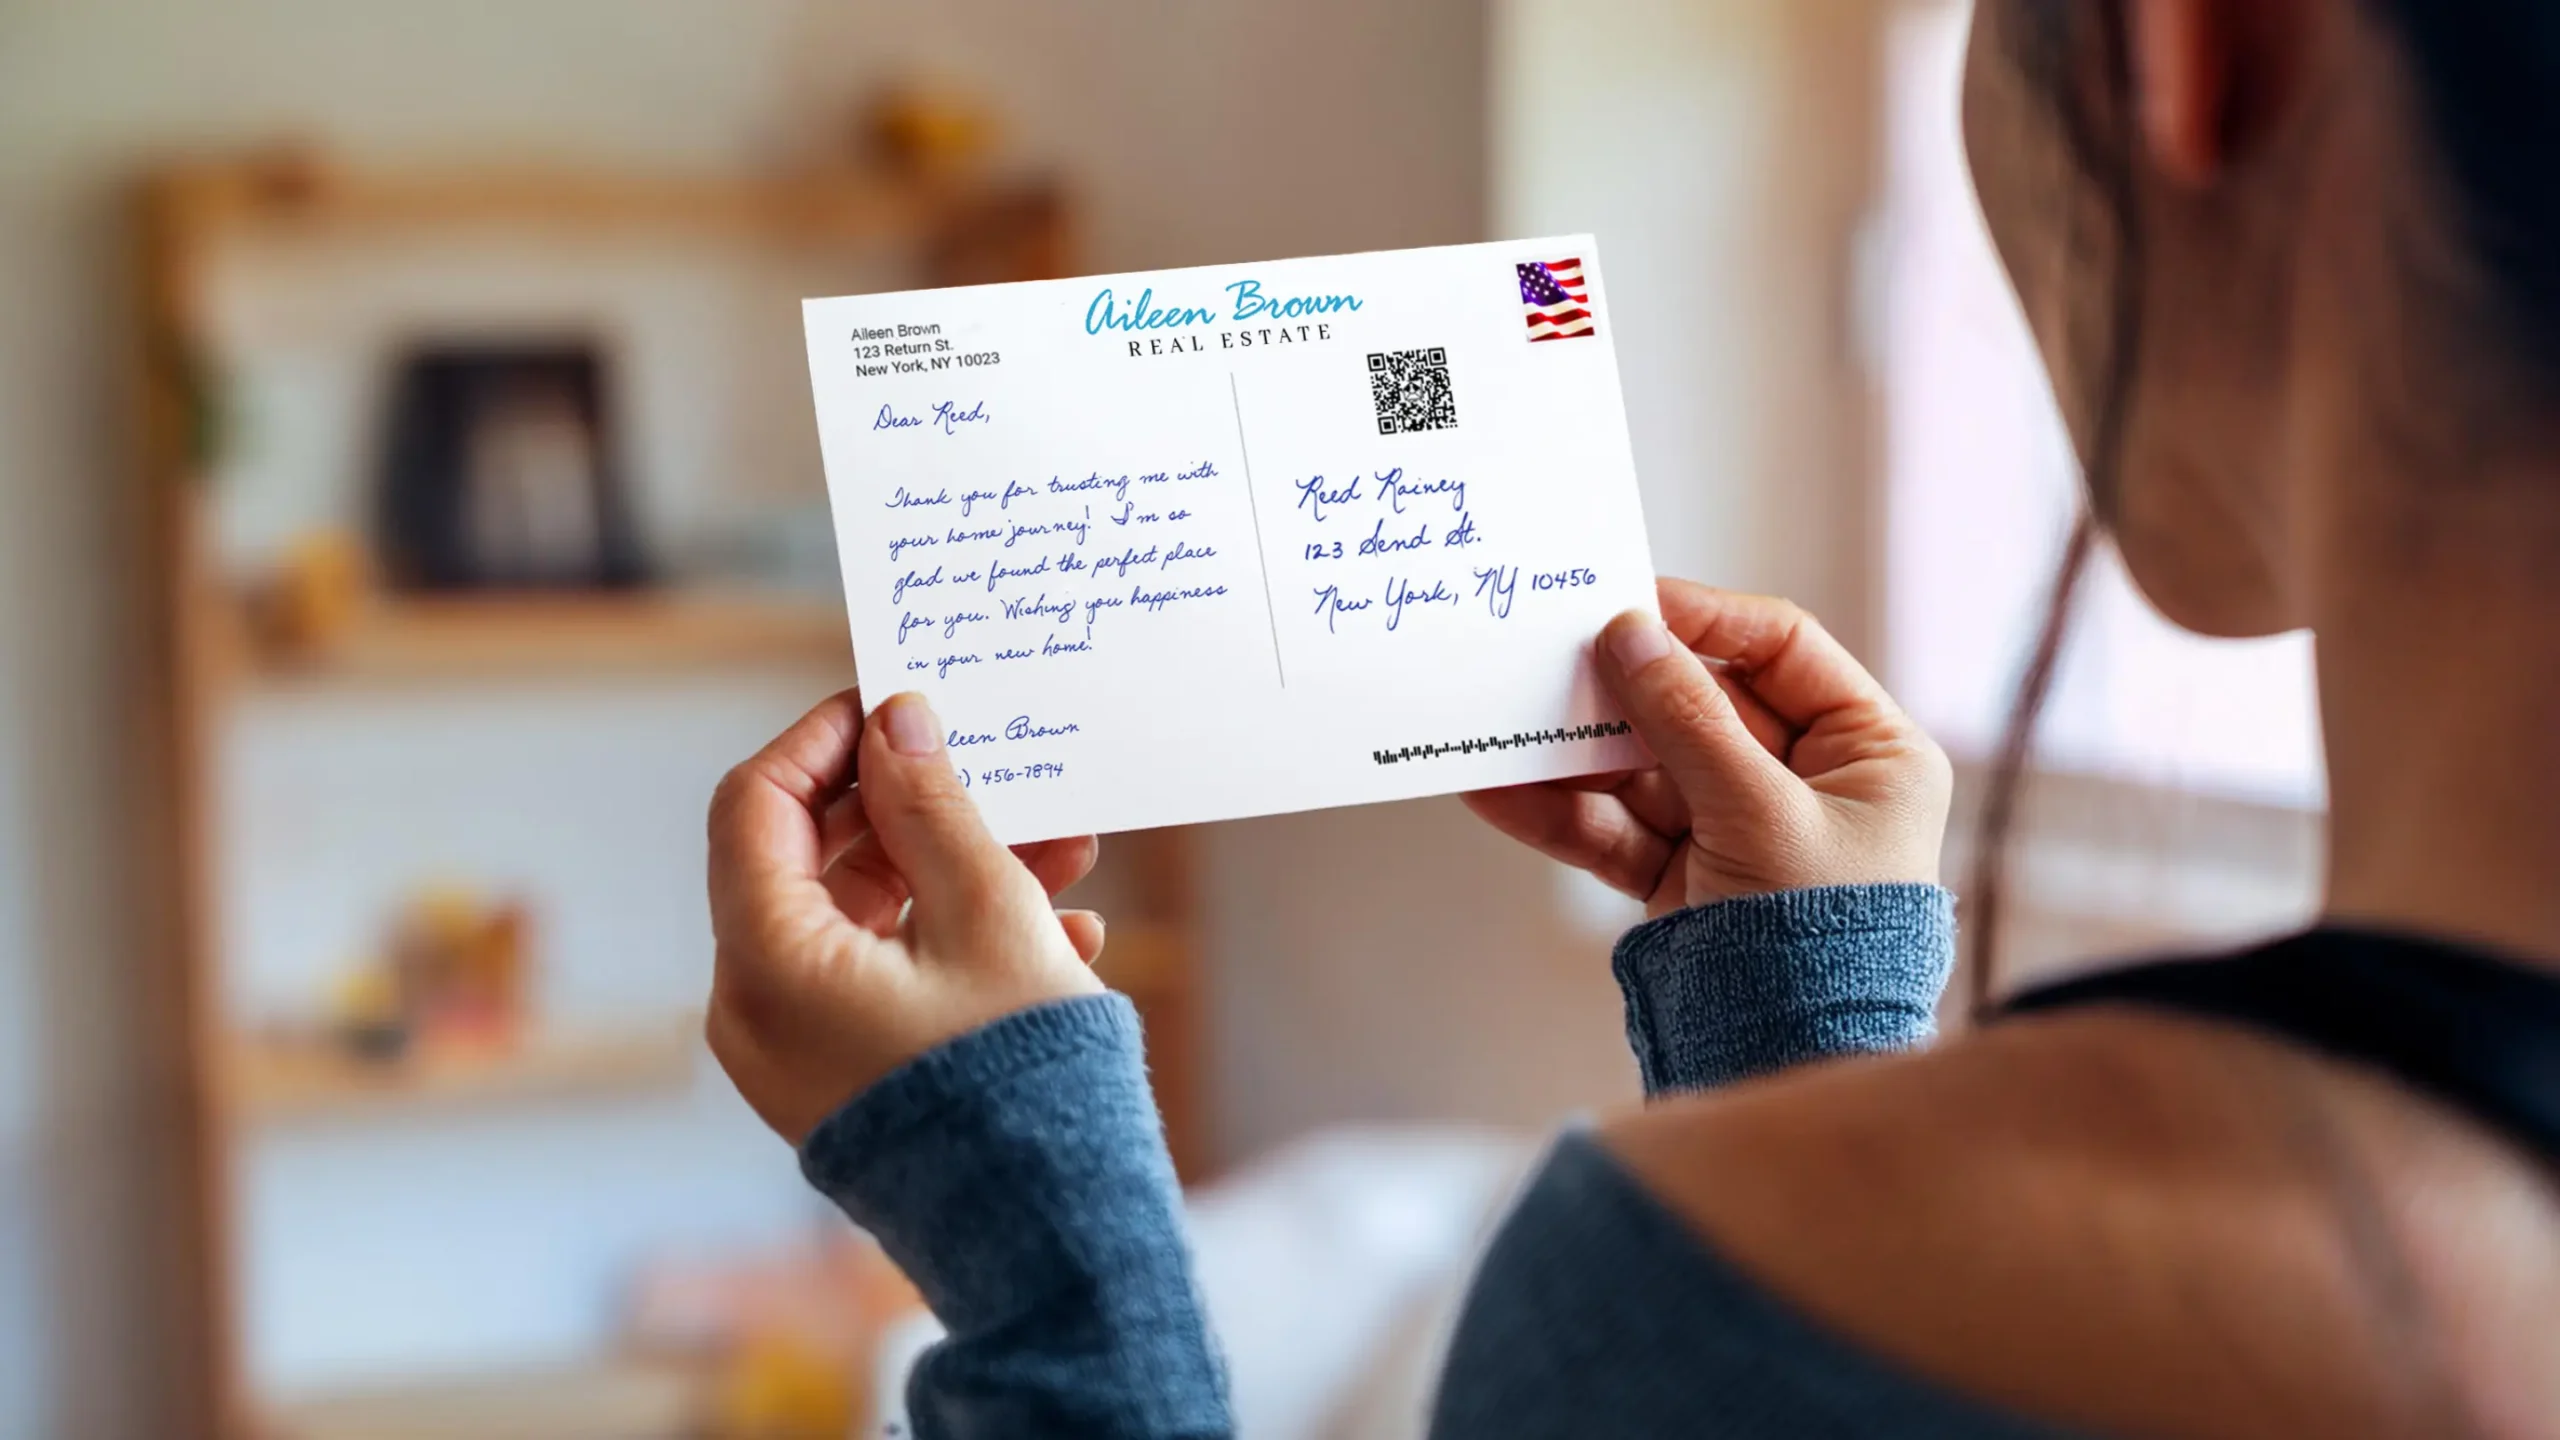 Aileen Brown
REAL ESTATE
Aileen Brown
123 Return St.
New York, NY 10023
Dear Reed,
Thank you for trusting me with
your home journey! I'm so
glad we found the perfect place
for you. Wishing you happiness
in your new home!
Brown
456-7894
Reed Rainey
123 Send St.
New York, NY 10456